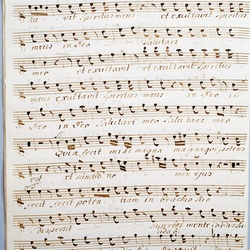 vit Spiritus meus et exultavit Spiritus
meus in Deo Salutari
meo et exultavit et exultavit
meus exultavit Spiritus meus in Deo
in Deo in Salutari meo Salutari meo
Quia fecit mihi magna magna qui potens
et sanctum no men ejus
fecit fecit poten tiam in brachio suo
dispersit superbos mente cordis